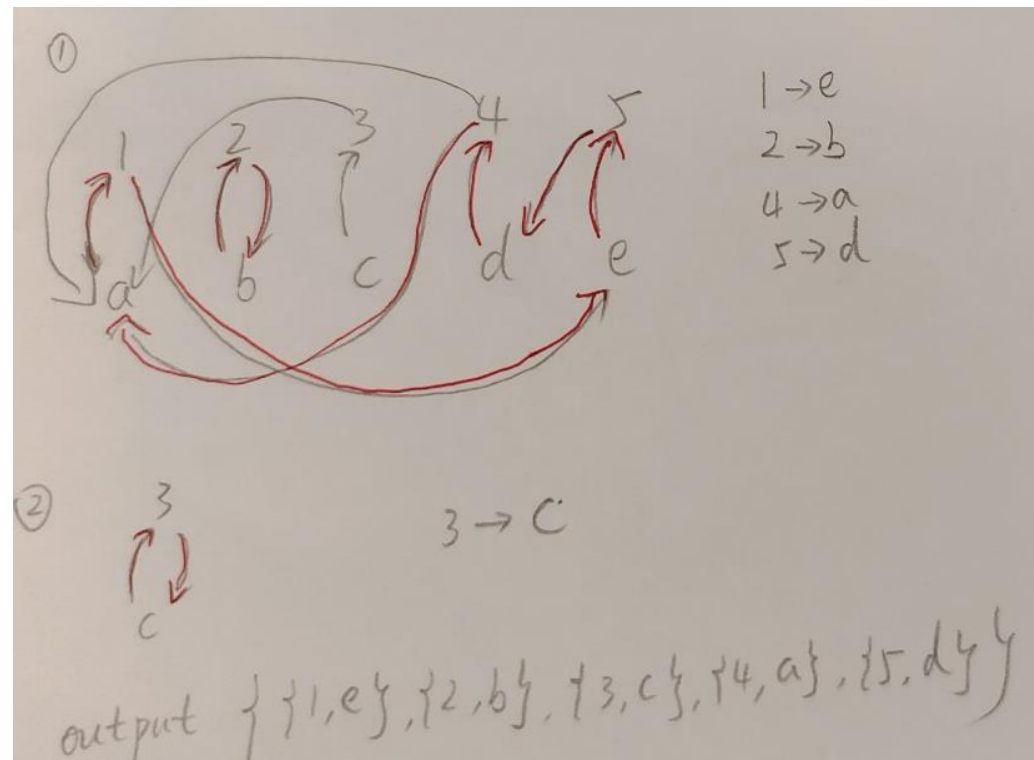 ①
1 2 3 4 5
a b c d e
1 → e
2 → b
4 → a
5 → d
②
3
c
3 → C
output {{1,e},{2,b},{3,c},{4,a},{5,d}}